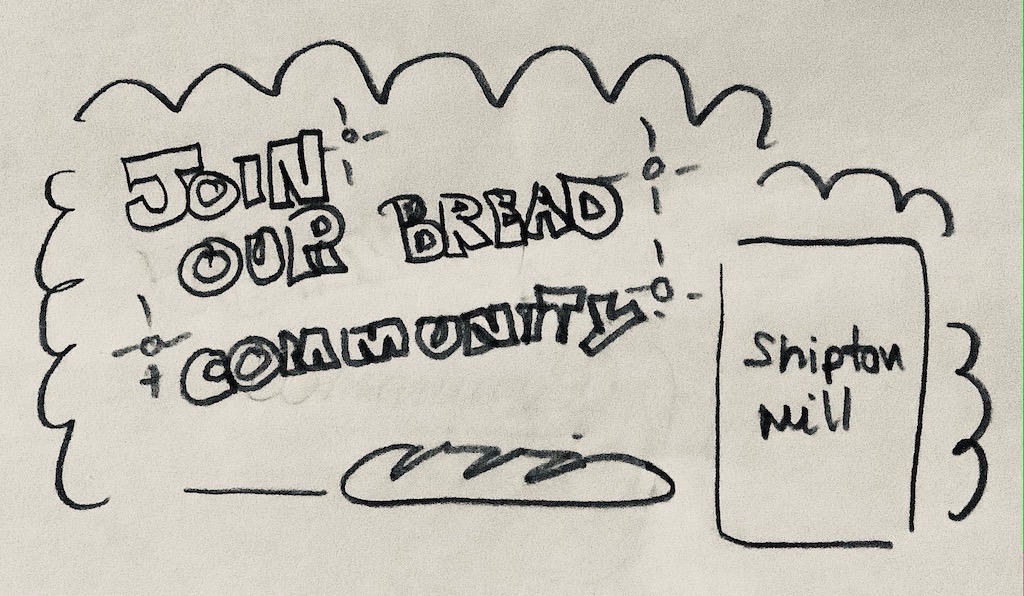 JOIN
OUR BREAD
COMMUNITY
Shipton
Mill